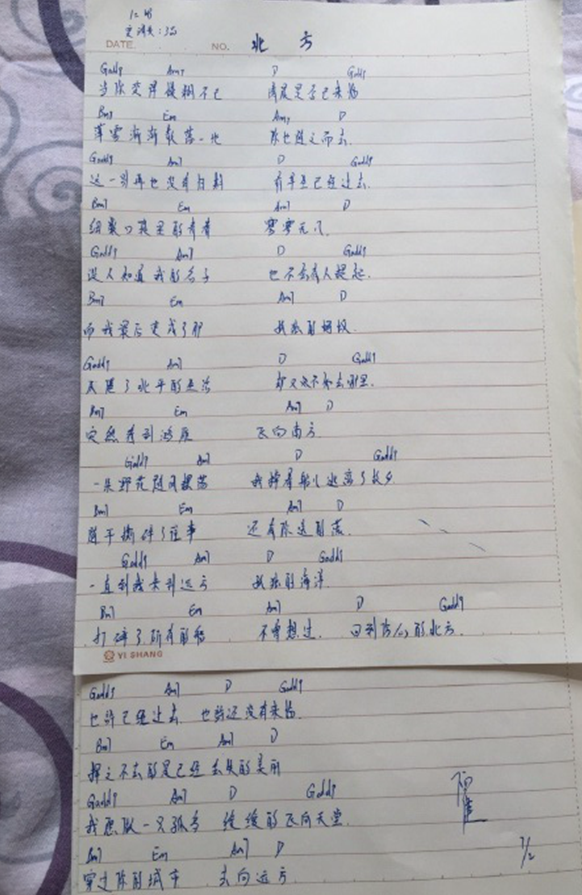 变调夹：3品
DATE. NO. 北方
Gadd9 Am7 D Gadd9
当你变得模糊不已 清晨是否已来临
Bm7 Em Am7 D
薄雪渐渐散落一地 你也随之而去
Gadd9 Am7 D Gadd9
这一别再也没有归期 前半生已经过去
Bm7 Em Am7 D
细数 寥寥无几
Gadd9 Am7 D Gadd9
没人知道我的名子 也不会有人提起
Bm7 Em Am7 D
而我最后变成了那 孤独的蚂蚁
Gadd9 Am7 D Gadd9
厌倦了北平的生活 却又说不知去哪里
Bm7 Em Am7 D
突然看到鸿雁 飞向南方
Gadd9 Am7 D Gadd9
一朵野花随风摇荡 我撑着船儿逃离了故乡
Bm7 Em Am7 D
随手撕碎了往事 还有你送的
Gadd9 Am7 D Gadd9
一直到我来到远方 孤独的海洋
Bm7 Em Am7 D Gadd9
打碎了所有的 不曾想过 回到伤心的北方
YI SHANG
Gadd9 Am7 D Gadd9
也许已经过去 也许还没有来临
Bm7 Em Am7 D
挥之不去的是已经丢失的美丽
Gadd9 Am7 D Gadd9
我愿做一只孤鸟 缓缓的飞向天堂
Bm7 Em Am7 D
穿过你的城市 去向远方
1/2